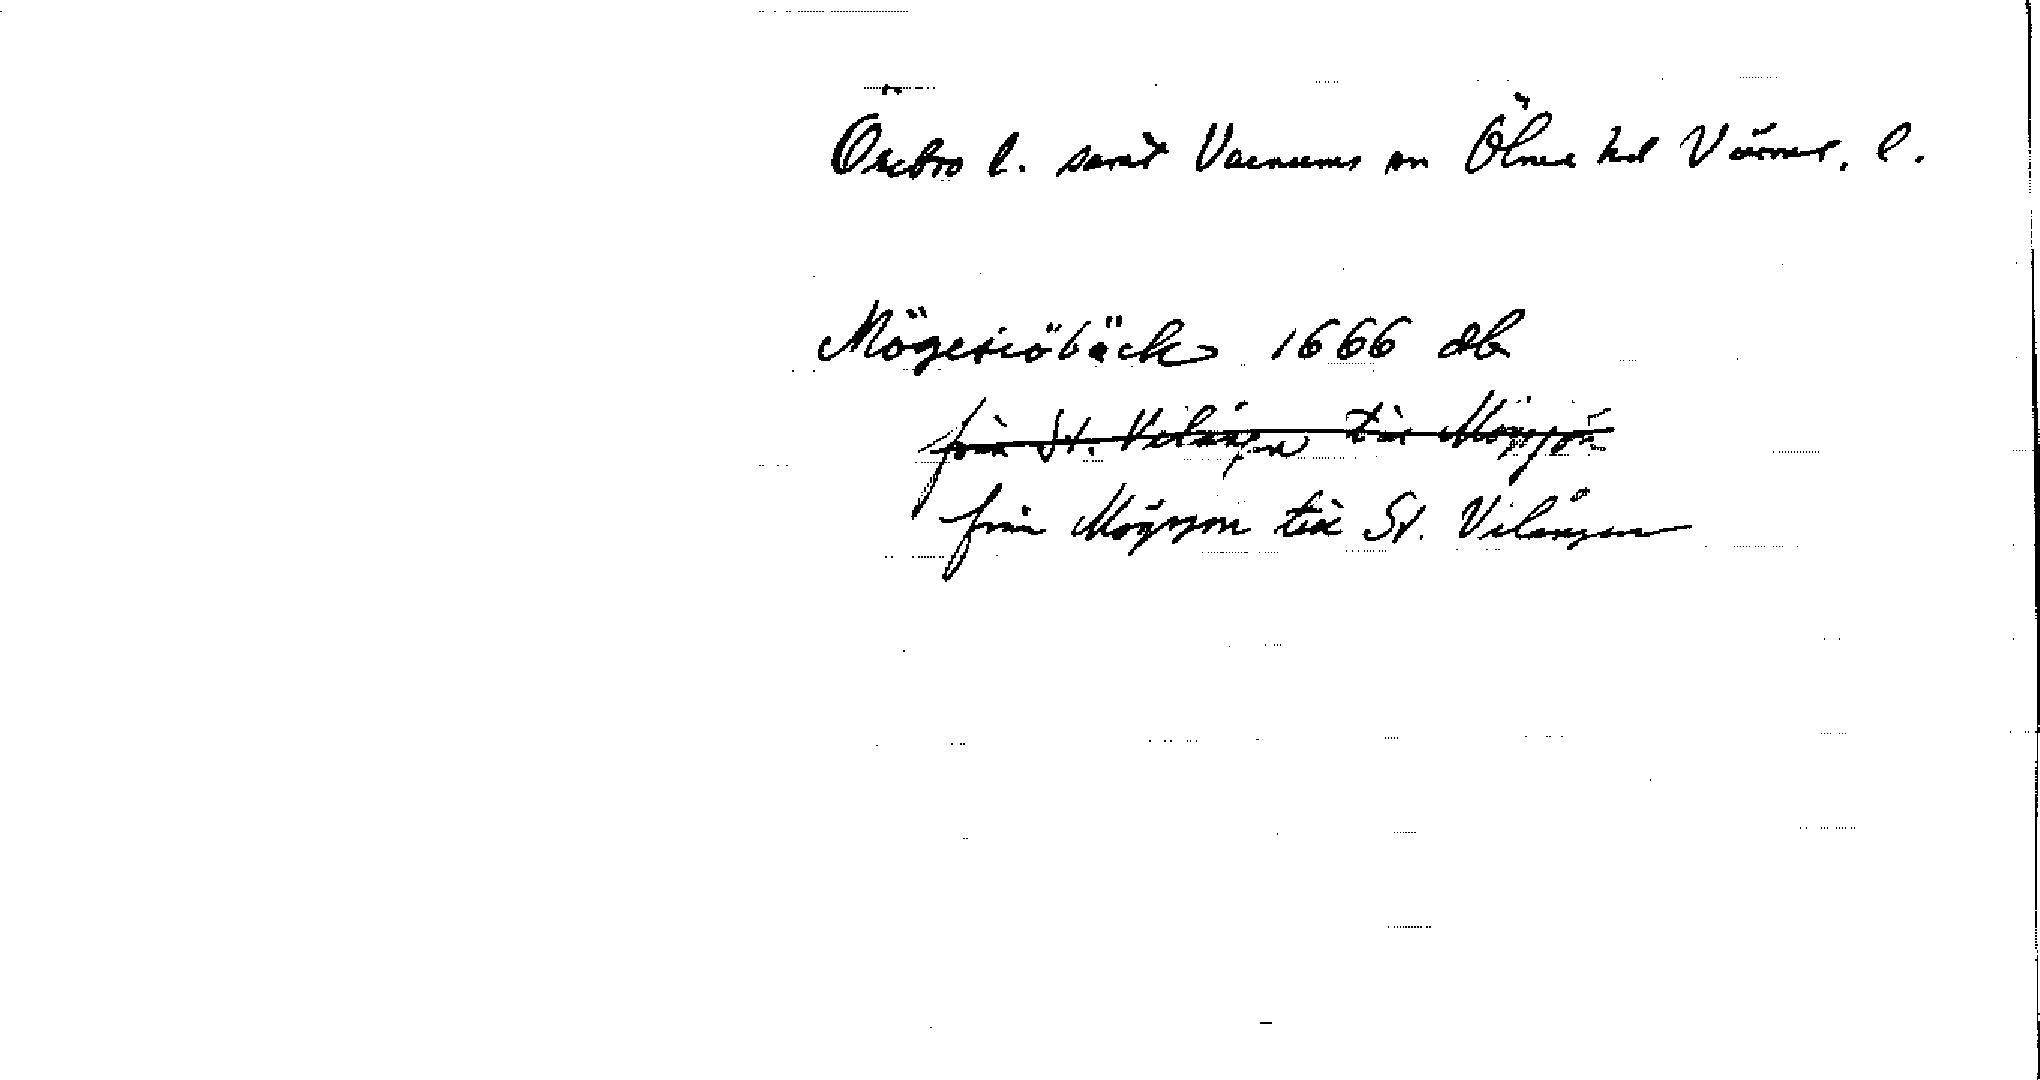 Örebro l. samt Varnums sn Ölme hd Värml. l.
Mögesiöbäck 1666 db
från St. Vilången till Mögsjön
från Mögsjön till St. Vilången